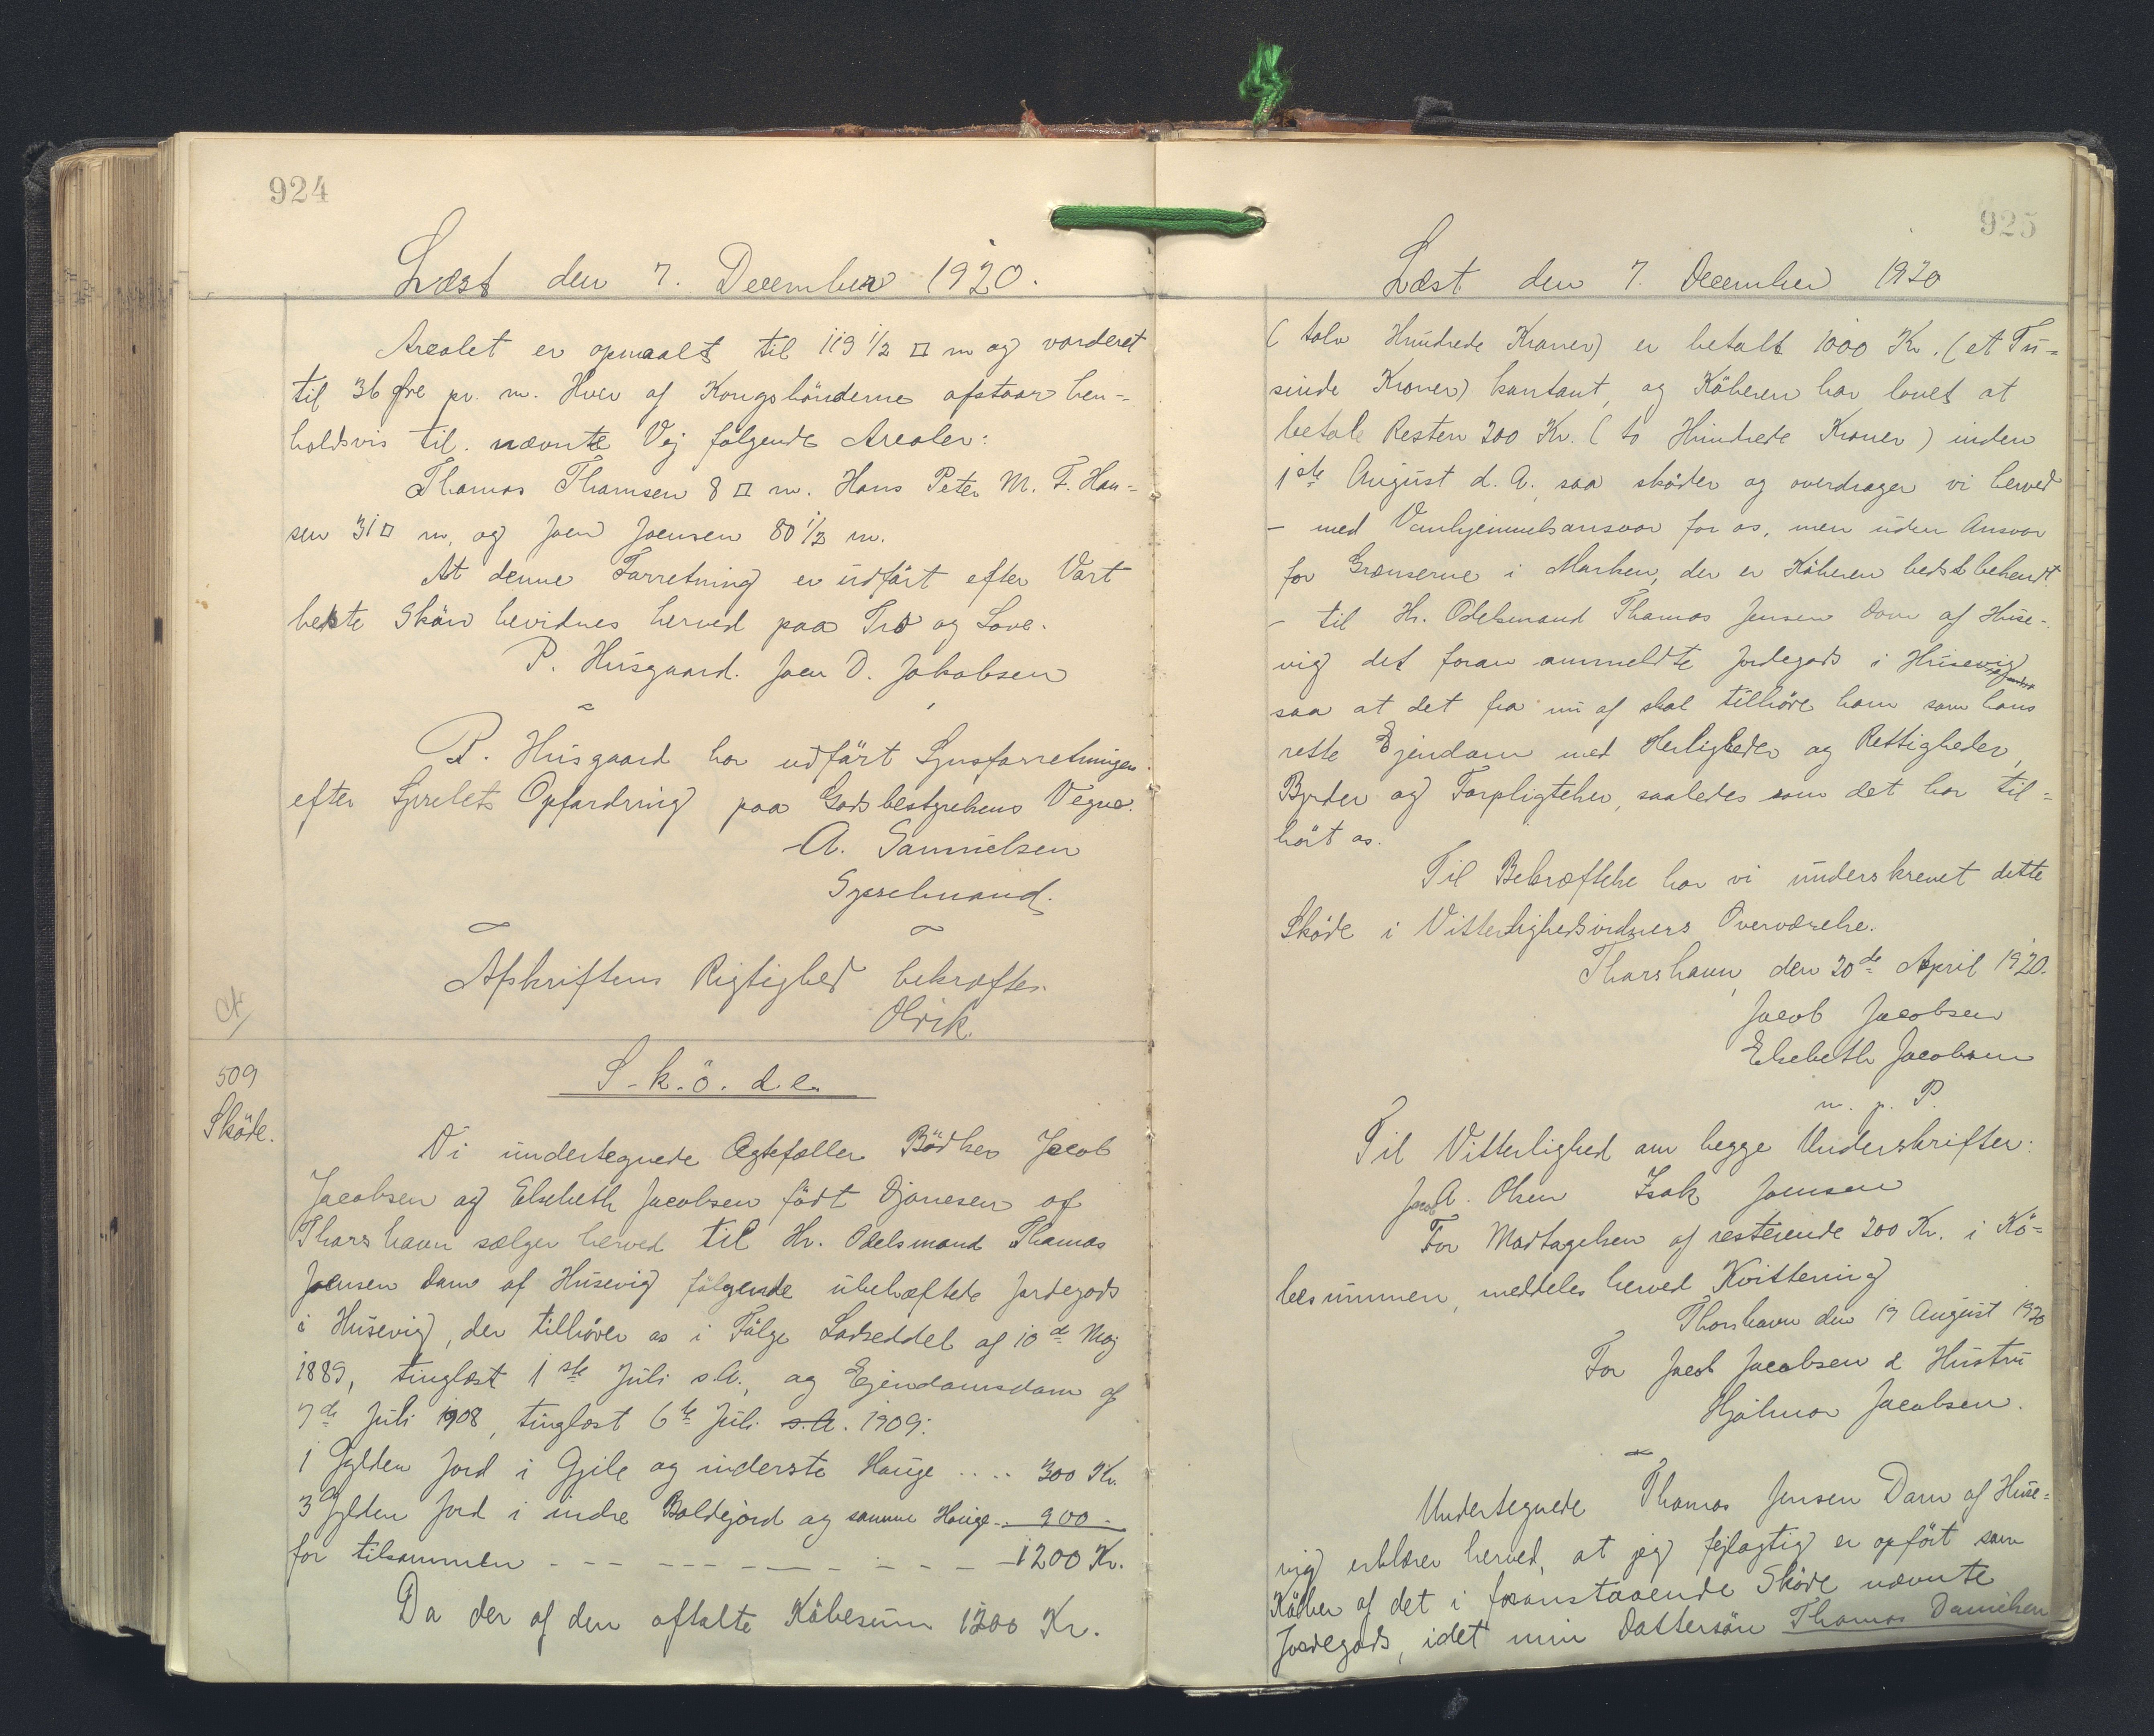 924
Læst den 7. December 1920.
Arealet er opmaalt til 119 1/2 □ m og vorderet
til 36 Øre pr. m. Hver af Kongsbönderne afstaar hen-
holdsvis til nævnte Vej følgende Arealer:
Thomas Thomsen 8 □ m. Hans Peter M. F. Han-
sen 31 □ m, og Joen Joensen 80 1/2 m.
At denne Forretning er udfört efter Vort
bedste Skön bevidnes herved paa Tro og Love.
P. Husgaard. Joen D. Jakobsen
P. Husgaard har udfört Synsforretningen
efter Sysselets Opfordring paa Godsbestyrelsens Vegne.
A. Samuelsen
Sysselmand.
Afskriftens Rigtighed bekræftes.
Olrik.
509
Sköde.
S.k.ö.d.e.
Vi undertegnede Ægtefæller Bödker Jacob
Jacobsen og Elsebeth Jacobsen födt Djonesen af
Thorshavn sælger herved til Hr. Odelsmand Thomas
Joensen Dam af Husevig følgende ubehæftede Jordegods
i Husevig, der tilhörer os i Fölge Lodseddel af 10de Maj
1889, tinglæst 1ste Juli s.A., og Ejendomsdom af
7de Juli 1908, tinglæst 6te Juli s.A. 1909:
1 Gylden Jord i Gjile og inderste Hauge .... 300 Kr.
3 Gylden Jord i indre Boldejord og samme Hauge .. 900 -
for tilsammen - - - - - - - - - - - 1200 Kr.
Da der af den aftalte Köbesum 1200 Kr.
925
Læst den 7. December 1920
(tolv Hundrede Kroner) er betalt 1000 Kr. (et Tu-
sinde Kroner) kontant, og Köberen har lovet at
betale Resten 200 Kr. (to Hundrede Kroner) inden
1ste August d. A. saa sköder og overdrager vi herved
- med Vanhjemmelsansvar for os, men uden Ansvar
for Grænserne i Marken, der er Köberen bedst bekendt
- til Hr. Odelsmand Thomas Jensen Dam af Huse-
vig det foran anmeldte Jordegods i Husevig
saa at det fra nu af skal tilhöre ham som hans
rette Ejendom med Herligheder og Rettigheder,
Byrder og Forpligtelser, saaledes som det har til-
hört os.
Til Bekræftelse har vi underskrevet dette
Sköde i Vitterlighedsvidners Overværelse.
Thorshavn, den 20de April 1920.
Jacob Jacobsen
Elsebeth Jacobsen
m. f. P.
Til Vitterlighed om begge Underskrifter:
Jacob A. Olsen Isak Joensen
For Modtagelsen af resterende 200 Kr. i Kö-
besummen, meddeles herved Kvittering
Thorshavn den 19 August 1920
For Jacob Jacobsen & Hustru
Hjalmar Jacobsen.
Undertegnede Thomas Jensen Dam af Huse-
vig erklærer herved, at jeg fejlagtig er opfört som
Köber af det i foranstaaende Sköde nævnte
Jordegods, idet min Dattersön Thomas Danielsen